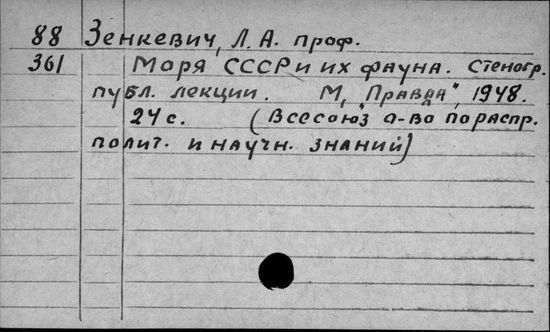 88 Зенкевич, Л. А. проф.
361 Моря СССР и их фауна. Стеногр.
публ. лекции. М, "Правда", 1948.
24 с. (Всесоюз о-во по распр.
полит. и научн. знаний)